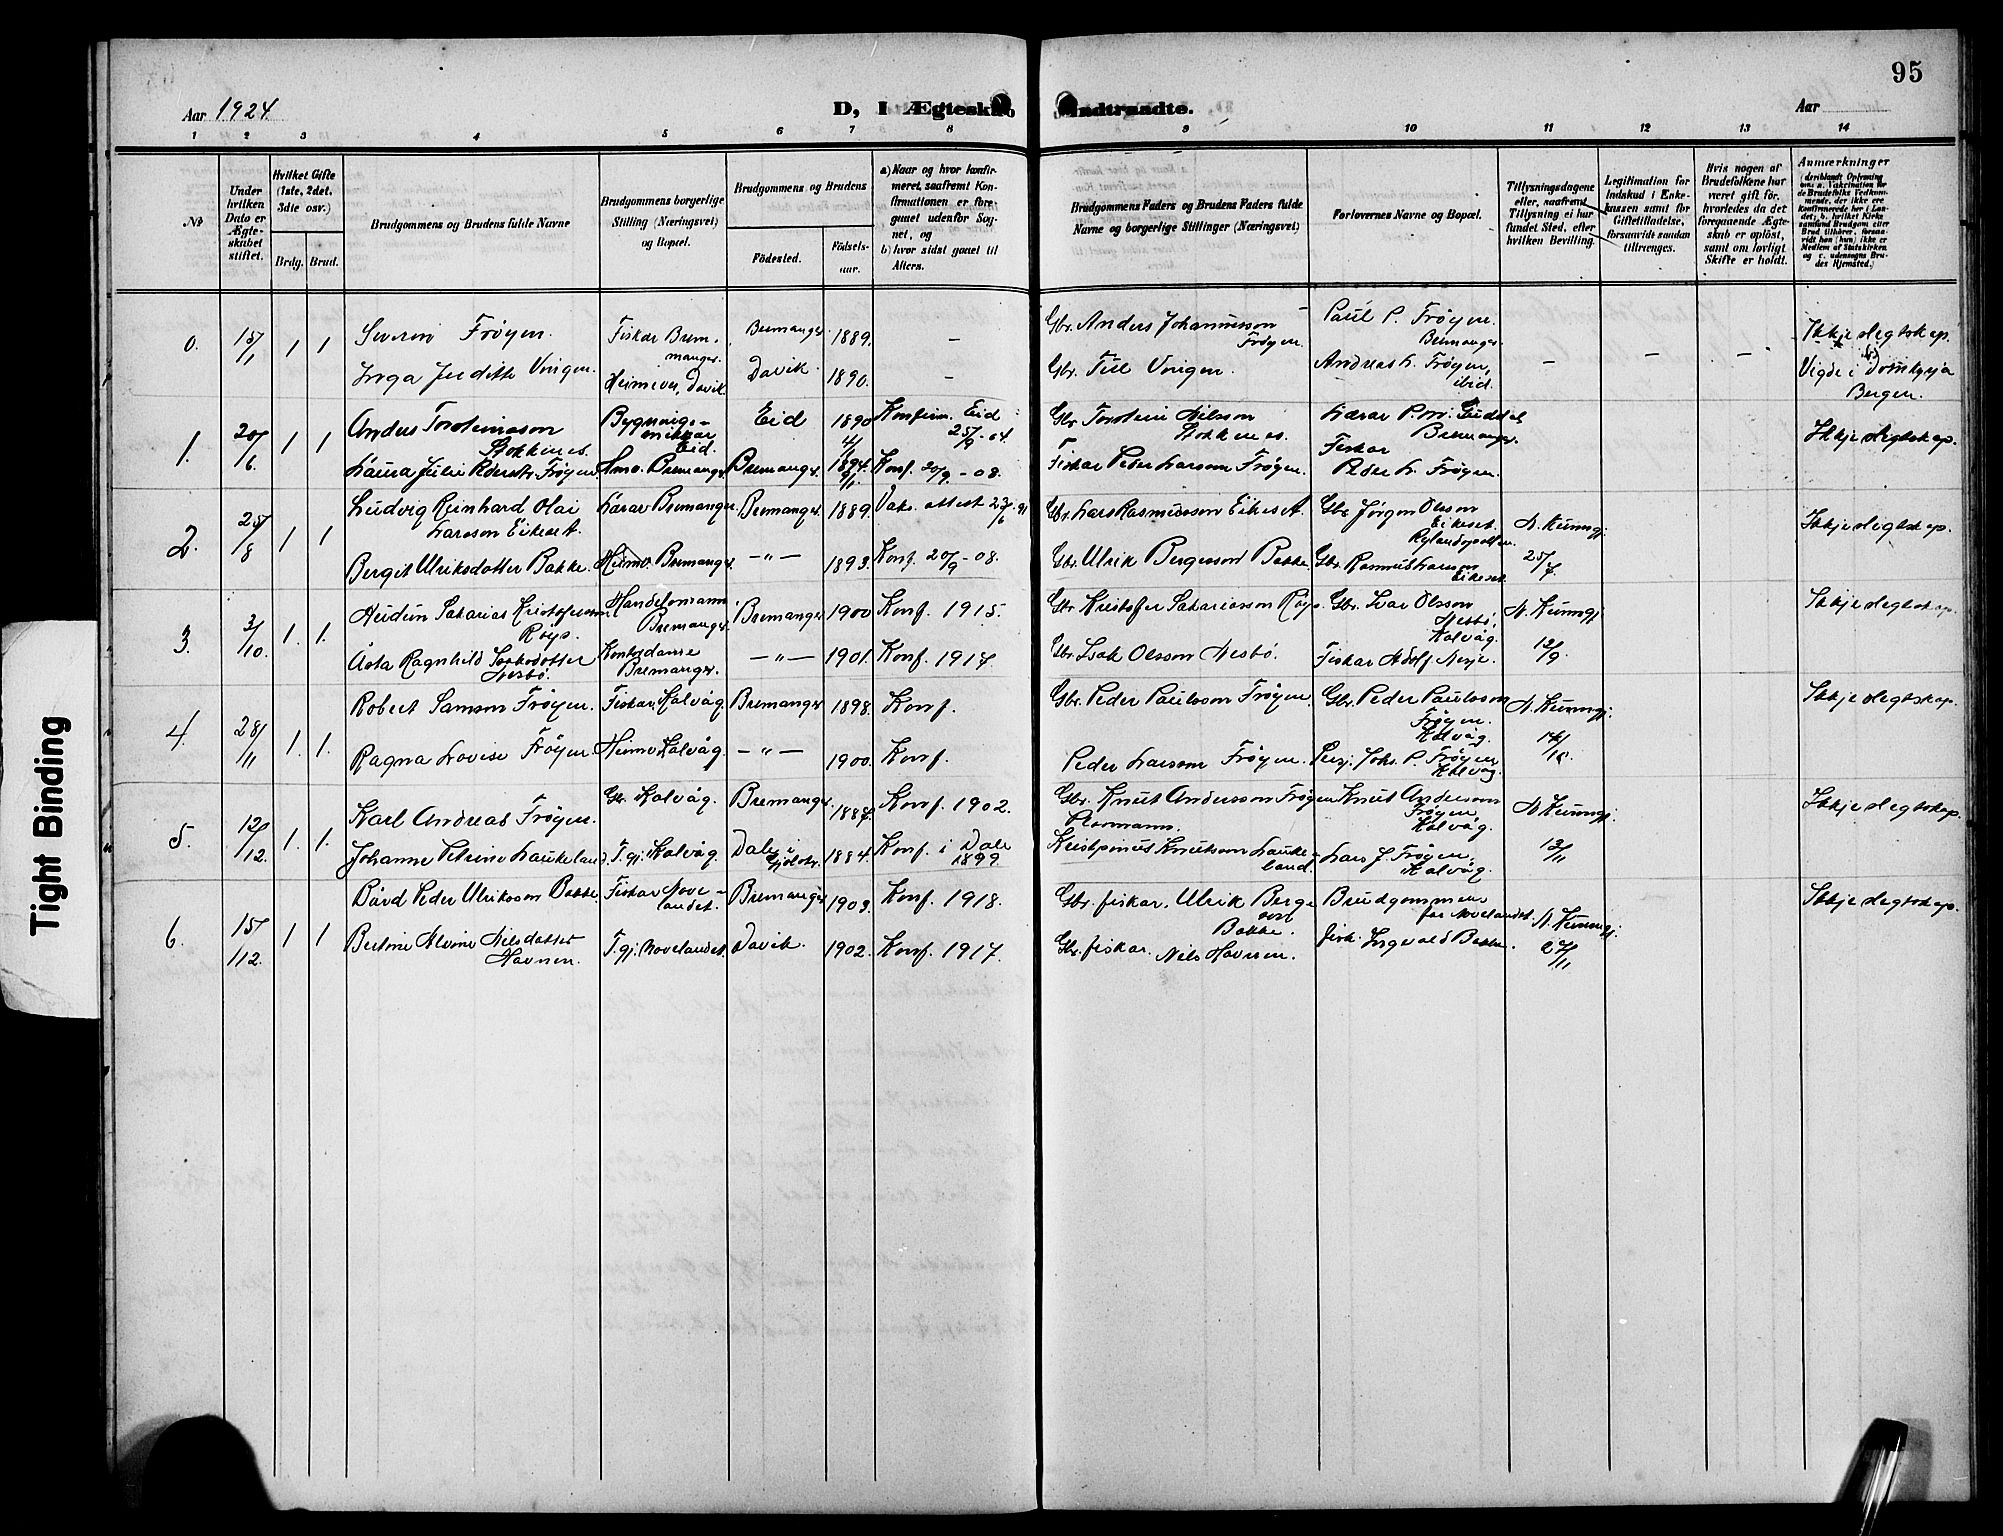 95
Aar 1924
D, I Ægteskab Indtraadte.
Aar
1 2 3 4 5 6 7 8 9 10 11 12 13 14
№
Under hvilken Dato er Ægteskabet stiftet.
Hvilket Gifte (1ste, 2det, 3die osv.)
Brdg. Brud.
Brudgommens og Brudens fulde Navne
Brudgommens borgerlige Stilling (Næringsvei) og Bopæl.
Brudgommens og Brudens
Födested.
Födselsaar.
a) Naar og hvor konfirmeret, saafremt Konfirmationen er foregaaet udenfor Sognet, og
b) hvor sidst gaaet til Alters.
Brudgommens Faders og Brudens Faders fulde Navne og borgerlige Stillinger (Næringsvei)
Forlovernes Navne og Bopæl.
Tillysningsdagene eller, saafremt Tillysning ei har fundet Sted, efter hvilken Bevilling.
Legitimation for Indskud i Enkekassen samt for Giftetilladelse, forsaavidt saadan tiltrænges.
Hvis nogen af Brudefolkene har været gift før, hvorledes da det foregaaende Ægteskab er oplöst, samt om lovligt Skifte er holdt.
Anmærkninger
(deriblandt Oplysning om: a. Vakcination for de Brudefolks Vedkommende, der ikke ere konfirmerede her i Landet; b. hvilket Kirkesamfund Brudgom eller Brud tilhører, forsaavidt han (hun) ikke er Medlem af Statskirken og c. udensogns Brudes Hjemsted.)
0. 15/1 1 1 Severin Frøyen. Fiskar Bremanger. Bremanger. 1889. - Gbr. Anders Johannesson Frøyen. Paul P. Frøyen. Bremanger. Ikkje slegtskap.
Inga Juditte Vengen. Heimever, Davik Davik. 1890. - Gbr. Till Vengen. Andreas L. Frøyen, ibid. - - - Vigde i Domkyrja Bergen.
1. 20/6 1 1 Anders Torsteinsson Stokkenes. Bygningssnikkar Eid. Eid 1890 4/1 Konfirm. Eid 25/9-04. Gbr Torstein Nilsson Stokkenes. Lærar Bremanger. Ikkje slegtskap.
Laura Julie Pedersdtr Frøyen. Hmv. Bremanger. Bremanger. 1894. 8/1 Konf. 20/9-08. Fiskar Peder Larsson Frøyen. Fiskar Peder L. Frøyen.
2. 25/8 1 1 Ludvig Reinhard Olai Larsson Eikeset. Lærar Bremanger. Bremanger. 1889. Vaks. attest 23/6 91 Gbr. Lars Rasmusson Eikeset. Gbr. Jørgen Olsson Eikeset. N. Kunngj. Ikkje slegtskap.
Bergit Ulriksdotter Bakke. Heimv. Bremanger. -"- 1893. Konf. 20/9-08. Gbr. Ulrik Bergesson Bakke. Gbr. Rasmus Larsson Eikeset. 25/7
3. 3/10. 1. 1. Audun Sakarias Kristofersson Røys. Handelsmann Bremanger. Bremanger. 1900 Konf. 1915. Gbr. Kristofer Sakariasson Røys. Gbr. Ivar Olsson Nesbö, Kalvåg. N. Kunngj Ikkje slegtskap.
Åsta Ragnhild Isaksdotter Nesbö. Kontordame Bremanger. -"- 1901. Konf. 1917. Gbr. Isak Olsson Nesbö. Fiskar Adolf Nesje. 12/9
4. 28/11 1. 1. Robert Samson Frøyen. Fiskar, Kalvåg. Bremanger. 1898. Konf. Gbr. Peder Paulsson Frøyen. Gbr. Peder Paulsson Frøyen. Kalvåg. N. Kunngj. Ikkje slegtskap.
Ragna Lovise Frøyen. Heimv. Kalvåg. -"- 1900. Konf. Peder Larsson Frøyen. Joh. P. Frøyen Kalvåg.
5. 12/12. 1. 1. Karl Andreas Frøyen. Gbr. Kalvåg. Bremanger. 1887. Konf. 1902. Gbr. Knut Andersson Frøyen Knut Andersson Frøyen, Kalvåg. N. Kunngj. Ikkje slegtskap.
Johanne Petrine Laukeland. T. gj. Kalvåg. Dale i 1884. Konf. i Dale 1899. Knutson Laukeland. Lars J. Frøyen, Kalvåg. 13/11
6. 15/12. 1 1 Bård Peder Ulriksson Bakke. Fiskar Novelandet. Bremanger 1903. Konf. 1918. Gbr. fiskar. Ulrik Bergesson Bakke. Brudgommens far Novelandet. N. Kunngj. Ikkje slegtskap.
Bertine Alvine Nilsdotter Havnen. T. gj. Novelandet. Davik. 1902. Konf. 1917. Gbr. fiskar. Nils Havnen. fisk. Ingvald Bakke. 27/11
Tight Binding